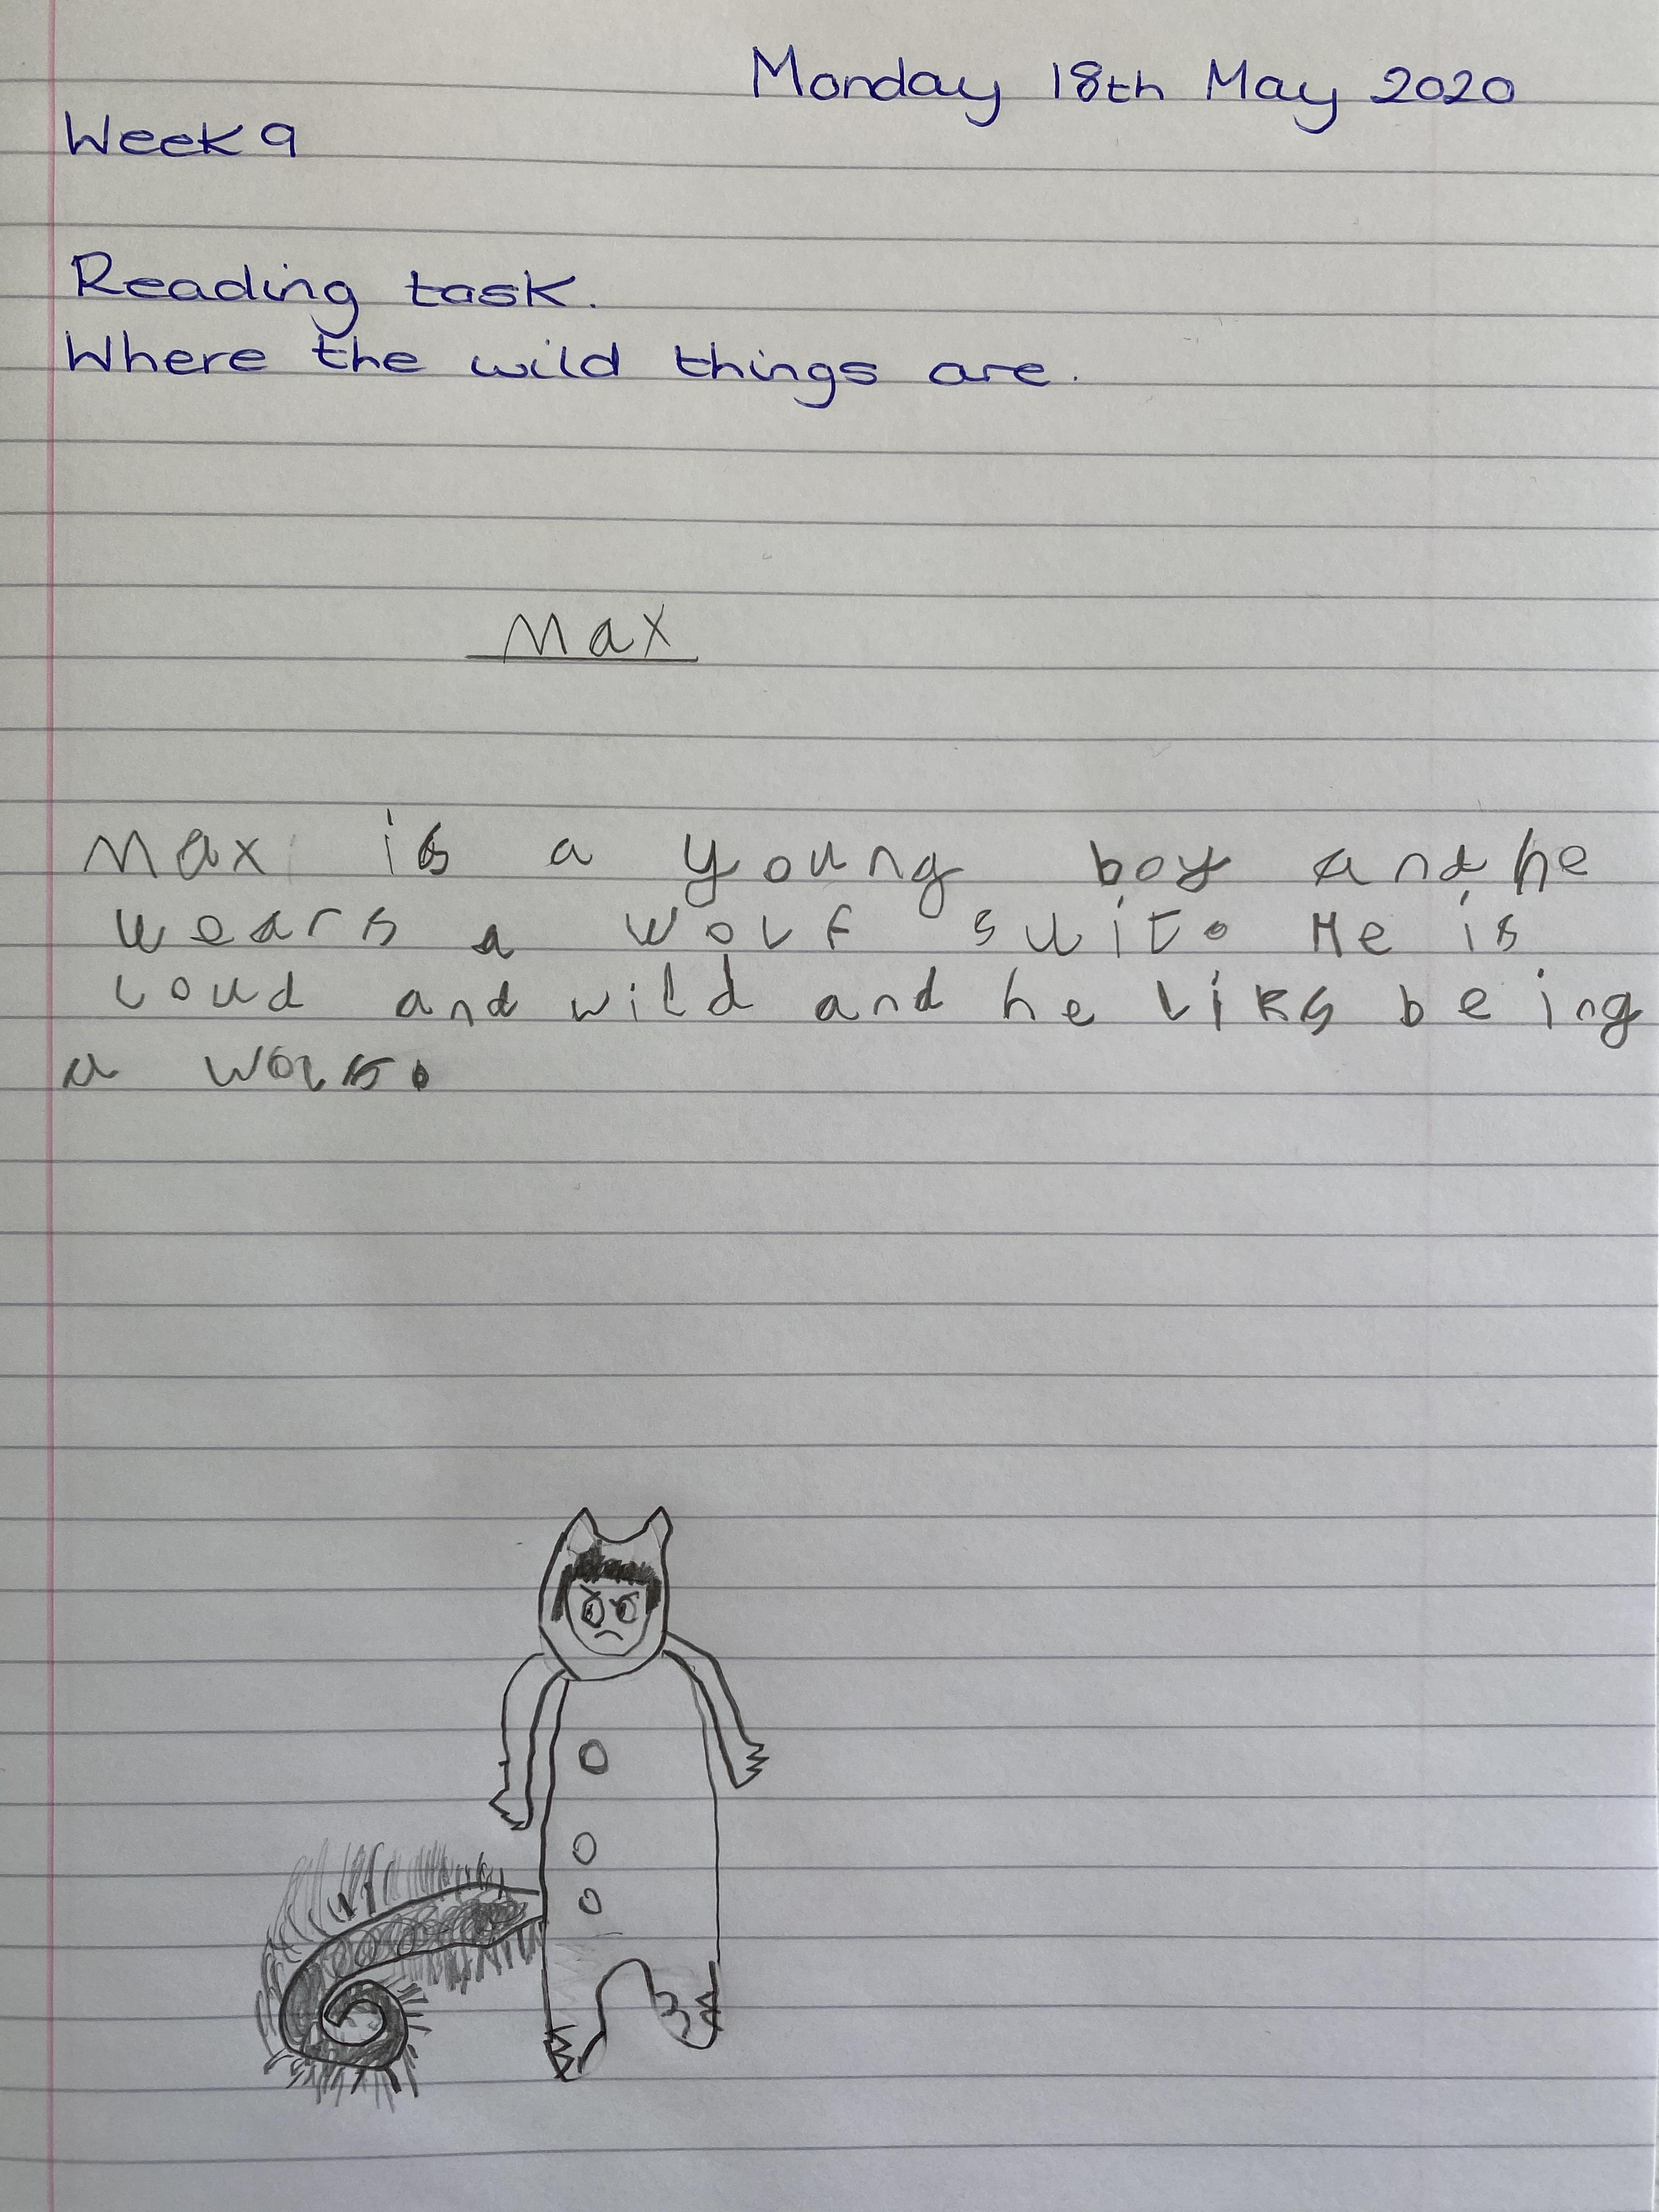 Monday 18th May 2020
Week 9
Reading task.
Where the wild things are.
Max
Max is a young boy and he
wears a wolf suit. He is
loud and wild and he liks being
a